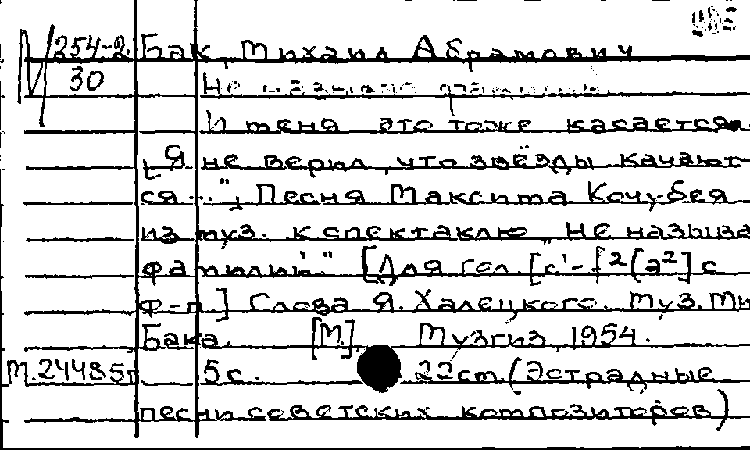 254-2 Бак, Михаил Абрамович
30 Не называя фамилии.
И меня это тоже касается.
„Я не верил, что звёзды качают-
ся...", Песня Максима Кочубея
из муз. к спектаклю „Не называя
фамилий." [Для гол. [c¹-f²(a²] с
ф-п.] Слова Я. Халецкого. Муз. Ми
Бака. [М.], Музгиз, 1954.
М.24485 5 с. 22 см. (Эстрадные
песни советских композиторов)